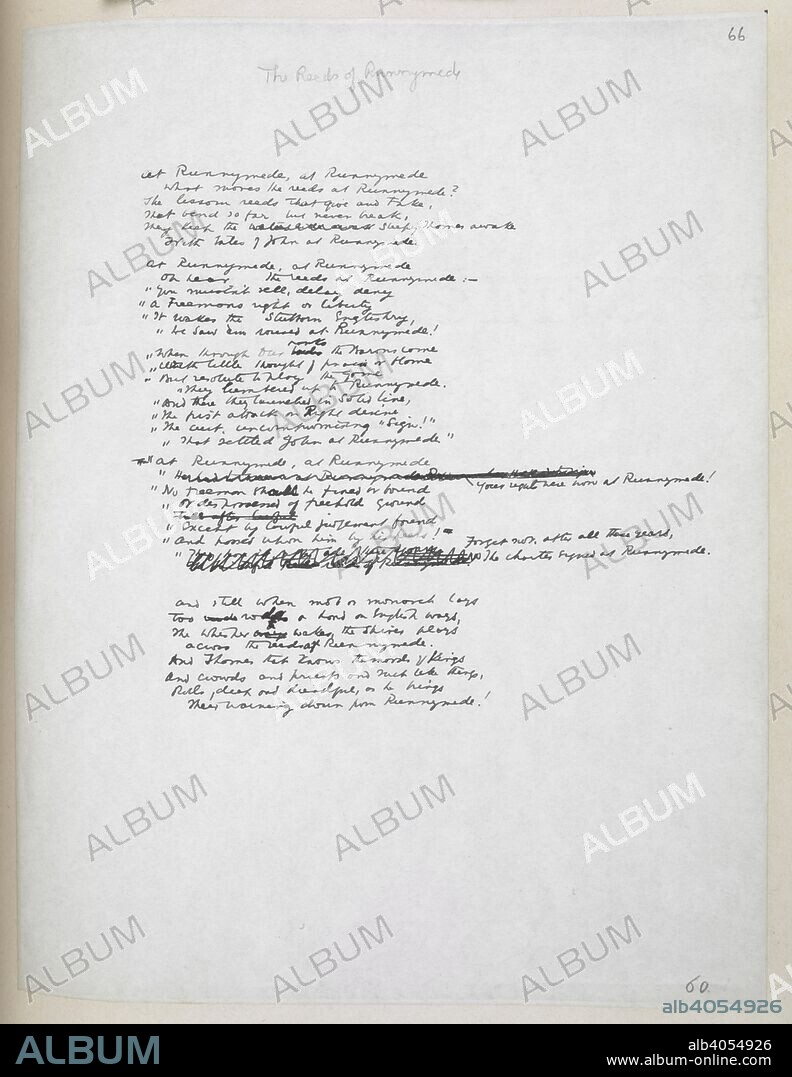 66
The Reeds of Runnymede
At Runnymede, at Runnymede
What moves the reeds at Runnymede?
The lissom reeds that give and take,
That bend so far but never break,
They keep the sleepy Thames awake
With tales of John at Runnymede.
At Runnymede, at Runnymede
Oh hear the reeds at Runnymede :-
"You mustn't sell, delay, deny
"A Freeman's right or liberty
"It wakes the stubborn Englishry,
"We saw 'em roused at Runnymede!
"When through our ranks the Barons came
"With little thought of praise or blame
"But resolute to play the game
"They lumbered up to Runnymede.
"And there they launched in solid line,
"The first attack on Right divine
"The curt, uncompromising "Sign!"
"That settled John at Runnymede"
"At Runnymede, at Runnymede
Your rights were won at Runnymede!
"No freeman shall be fined or bound
"Or dispossessed of freehold ground
"Except by lawful judgement found
"And passed upon him by his Peers!
Forget not, after all these years,
The charter signed at Runnymede.
And still when mob or monarch lays
Too rude a hand on English ways,
The whisper wakes, the shires plays
across the reeds at Runnymede.
And Thames that knows the moods of Kings
And crowds and priests and such like things,
Rolls, deep and dreadful, as he brings
Their warning down from Runnymede!
60
ALBUM
alb4054926
ALBUM
alb4054926
www.album-online.com